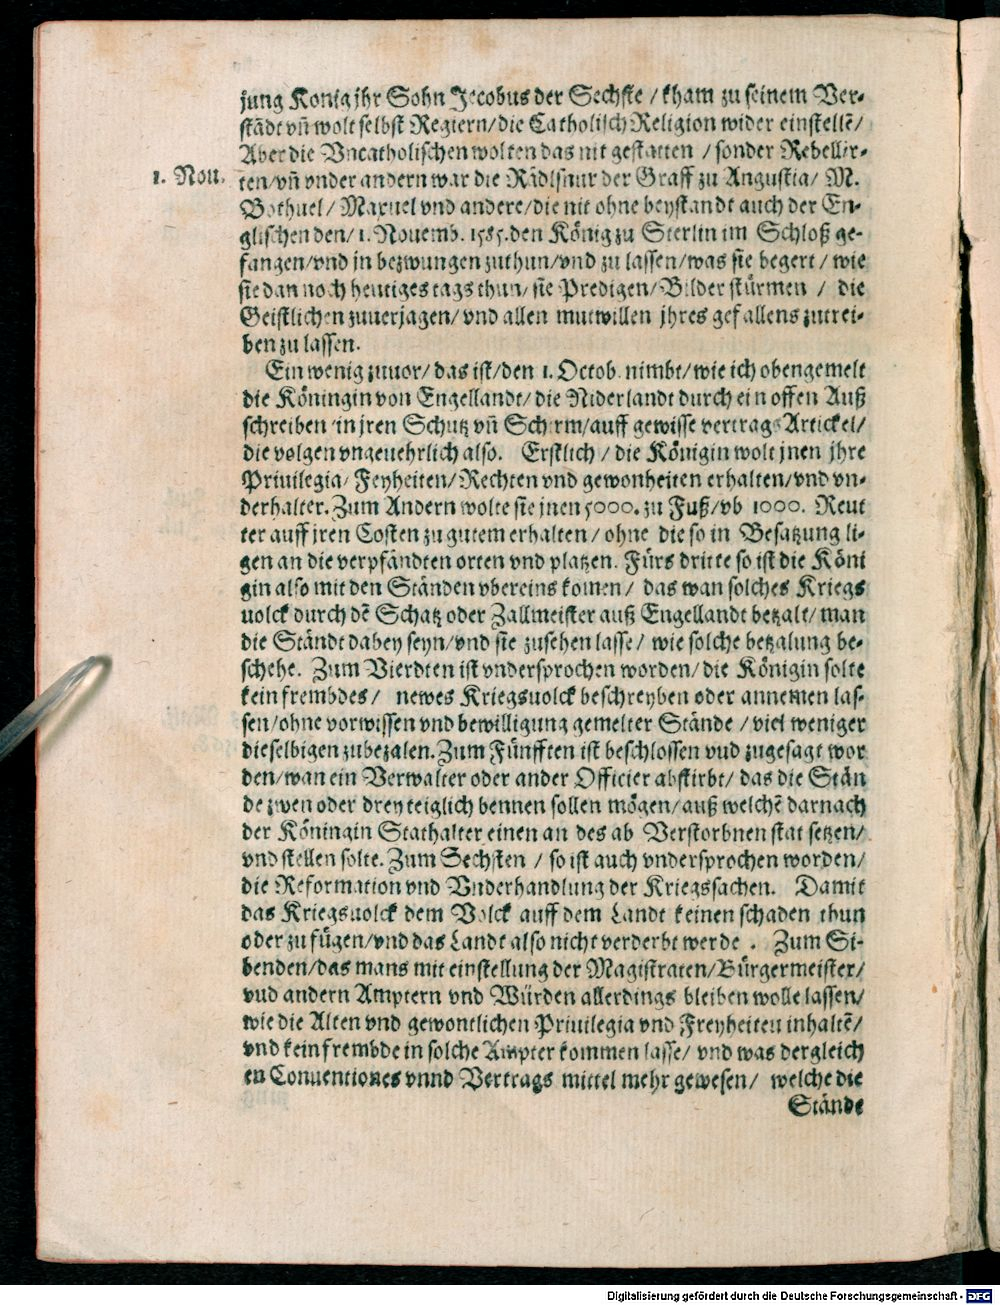 jung Konig jhr Sohn Jacobus der Sechste / kham zu seinem Ver-
städt vñ wolt selbst Regiern/die Catholisch Religion wider einstellē/
Aber die Vncatholischen wolten das nit gestatten / sonder Rebellir-
1. Nou.
ten/vñ vnder andern war die Rädlfüur der Graff zu Angustia/ M.
Bothuel/ Maxuel vnd andere/die nit ohne beystandt auch der En-
glischen den/ 1. Nouemb. 1585. den König zu Sterlin im Schloß ge-
fangen/vnd jn bezwungen zuthun/vnd zu lassen/was sie begert / wie
sie dan noch heutiges tags thun/ sie Predigen/Bilder stürmen / die
Geistlichen zuuerjagen/ vnd allen mutwillen jhres gefallens zutrei-
ben zu lassen.
Ein wenig zuuor/ das ist/den 1. Octob. nimbt/wie ich obengemelt
die Köningin von Engellandt/ die Niderlandt durch ein offen Auß
schreiben in jren Schutz vñ Schirm/auff gewisse vertrags Artickel/
die volgen vngeuehrlich also. Erstlich / die Königin wolt jnen jhre
Priuilegia/ Feyheiten/Rechten vnd gewonheiten erhalten/vnd vn-
derhalter. Zum Andern wolte sie jnen 5000. zu Fuß/vb 1000. Reut
ter auff jren Costen zu gutem erhalten/ ohne die so in Besatzung li-
gen an die verpfändten orten vnd platzen. Fürs dritte so ist die Köni
gin also mit den Ständen vbereins komen/ das wan solches Kriegs
uolck durch dē Schatz oder Zallmeister auß Engellandt betzalt/ man
die Ständt dabey seyn/vnd sie zusehen lasse/ wie solche betzalung be-
schehe. Zum Vierdten ist vndersprochen worden/ die Königin solte
kein frembdes/ newes Kriegsuolck beschreyben oder annemen las-
sen/ohne vorwissen vnd bewilligung gemelter Stände / viel weniger
dieselbigen zubezalen. Zum Fünfften ist beschlossen vud zugesagt wor
den/wan ein Verwalter oder ander Officier abstirbt/ das die Stän
de zwen oder drey teiglich bennen sollen mögen/auß welchē darnach
der Köningin Stathalter einen an des ab Verstorbnen stat setzen/
vnd stellen solte. Zum Sechsten / so ist auch vndersprochen worden/
die Reformation vnd Vnderhandlung der Kriegssachen. Damit
das Kriegsuolck dem Volck auff dem Landt keinen schaden thun
oder zu fügen/vnd das Landt also nicht verderbt werde . Zum Si-
benden/das mans mit einstellung der Magistraten/Bürgermeister/
vud andern Amptern vnd Würden allerdings bleiben wolle lassen/
wie die Alten vnd gewontlichen Priuilegia vnd Freyheiten inhaltē/
vnd kein frembde in solche Ampter kommen lasse/ vnd was dergleich
en Conuentiones vnnd Vertrags mittel mehr gewesen/ welche die
Stände
Digitalisierung gefördert durch die Deutsche Forschungsgemeinschaft - DFG